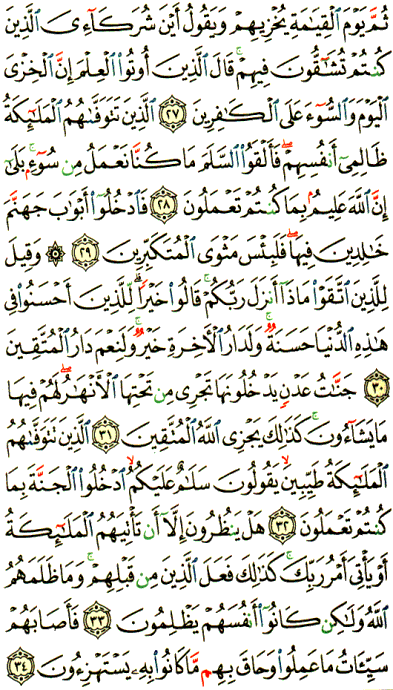 ثُمَّ يَوْمَ الْقِيَٰمَةِ يُخْزِيهِمْ وَيَقُولُ أَيْنَ شُرَكَآءِىَ الَّذِينَ
كُنتُمْ تُشَٰٓقُّونَ فِيهِمْ ۚ قَالَ الَّذِينَ أُوتُوا۟ الْعِلْمَ إِنَّ الْخِزْىَ
الْيَوْمَ وَالسُّوٓءَ عَلَى الْكَٰفِرِينَ ﴿٢٧﴾ الَّذِينَ تَتَوَفَّىٰهُمُ الْمَلَٰٓئِكَةُ
ظَالِمِىٓ أَنفُسِهِمْ ۖ فَأَلْقَوُا۟ السَّلَمَ مَا كُنَّا نَعْمَلُ مِن سُوٓءٍۭ ۚ بَلَىٰٓ
إِنَّ اللَّهَ عَلِيمٌۢ بِمَا كُنتُمْ تَعْمَلُونَ ﴿٢٨﴾ فَادْخُلُوٓا۟ أَبْوَٰبَ جَهَنَّمَ
خَٰلِدِينَ فِيهَا ۖ فَلَبِئْسَ مَثْوَى الْمُتَكَبِّرِينَ ﴿٢٩﴾ ۞ وَقِيلَ
لِلَّذِينَ اتَّقَوْا۟ مَاذَآ أَنزَلَ رَبُّكُمْ ۚ قَالُوا۟ خَيْرًا ۗ لِّلَّذِينَ أَحْسَنُوا۟ فِى
هَٰذِهِ الدُّنْيَا حَسَنَةٌ ۚ وَلَدَارُ الْءَاخِرَةِ خَيْرٌ ۚ وَلَنِعْمَ دَارُ الْمُتَّقِينَ
﴿٣٠﴾ جَنَّٰتُ عَدْنٍ يَدْخُلُونَهَا تَجْرِى مِن تَحْتِهَا الْأَنْهَٰرُ ۖ لَهُمْ فِيهَا
مَا يَشَآءُونَ ۚ كَذَٰلِكَ يَجْزِى اللَّهُ الْمُتَّقِينَ ﴿٣١﴾ الَّذِينَ تَتَوَفَّىٰهُمُ
الْمَلَٰٓئِكَةُ طَيِّبِينَ ۙ يَقُولُونَ سَلَٰمٌ عَلَيْكُمُ ۙ ادْخُلُوا۟ الْجَنَّةَ بِمَا
كُنتُمْ تَعْمَلُونَ ﴿٣٢﴾ هَلْ يَنظُرُونَ إِلَّآ أَن تَأْتِيَهُمُ الْمَلَٰٓئِكَةُ
أَوْ يَأْتِىَ أَمْرُ رَبِّكَ ۚ كَذَٰلِكَ فَعَلَ الَّذِينَ مِن قَبْلِهِمْ ۚ وَمَا ظَلَمَهُمُ
اللَّهُ وَلَٰكِن كَانُوٓا۟ أَنفُسَهُمْ يَظْلِمُونَ ﴿٣٣﴾ فَأَصَابَهُمْ
سَيِّـَٔاتُ مَا عَمِلُوا۟ وَحَاقَ بِهِم مَّا كَانُوا۟ بِهِۦ يَسْتَهْزِءُونَ ﴿٣٤﴾